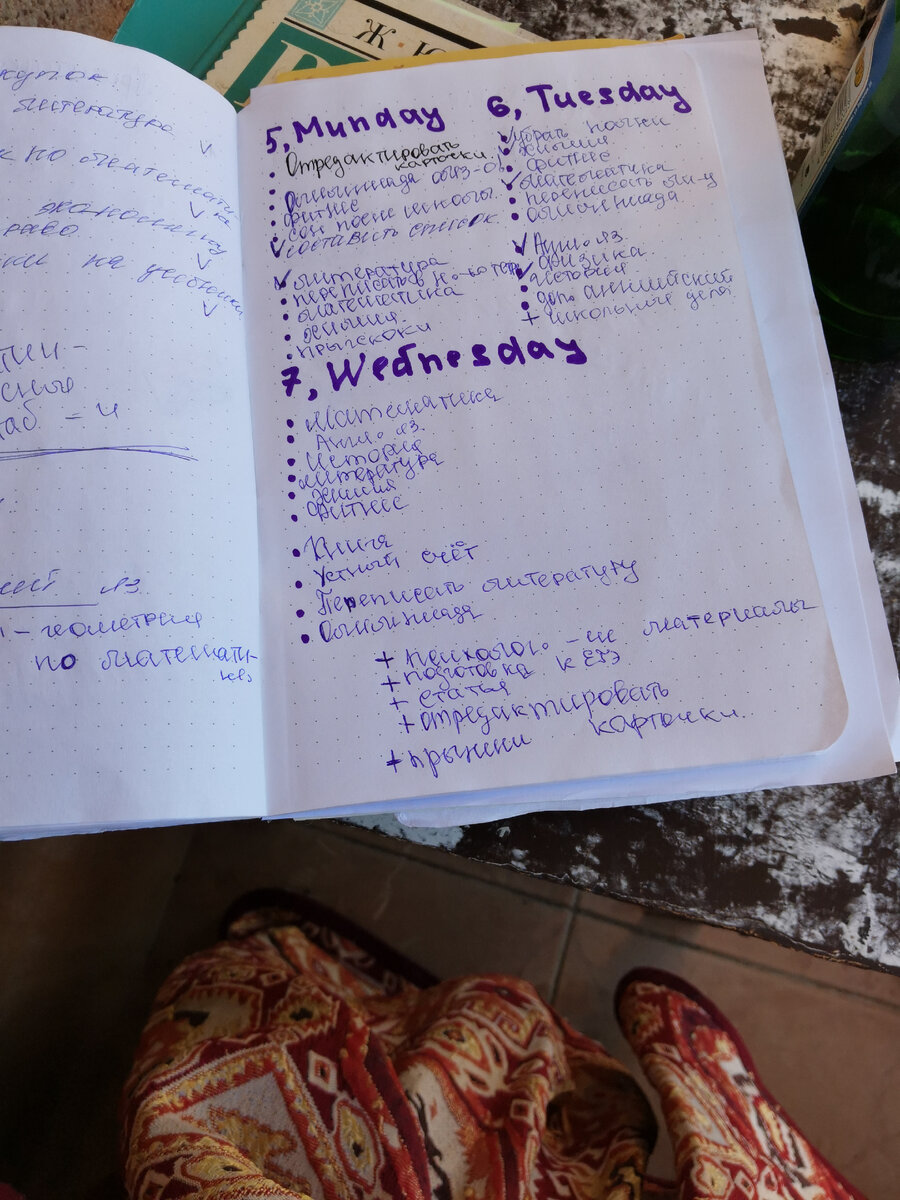 Ж.Ю
литература
по математи
ке
экономику
право
на
сной
таб. - и
яз.
- геометрия
по математи-
ке
5, Munday
• Отредактировать
карточки
• Олимпиада
• фитнес
• сон после школы
✓ составить список
✓ литература
• переписать в
• математика
• химия
• прыжки
6, Tuesday
✓ убрать
• химия
• фитнес
✓ математика
• переписать
• олимпиада
✓ Англ. яз.
✓ физика
• история
• доп. английский
+ школьные дела
7, Wednesday
• Математика
• Англ. яз.
• История
• литература
• химия
• фитнес
• Книга
• Устный счёт
• Переписать литературу
• Олимпиада
+ психолог. -ие материалы
+ подготовка к ЕГЭ
+ статья
+ отредактировать
карточки.
+ прыжки